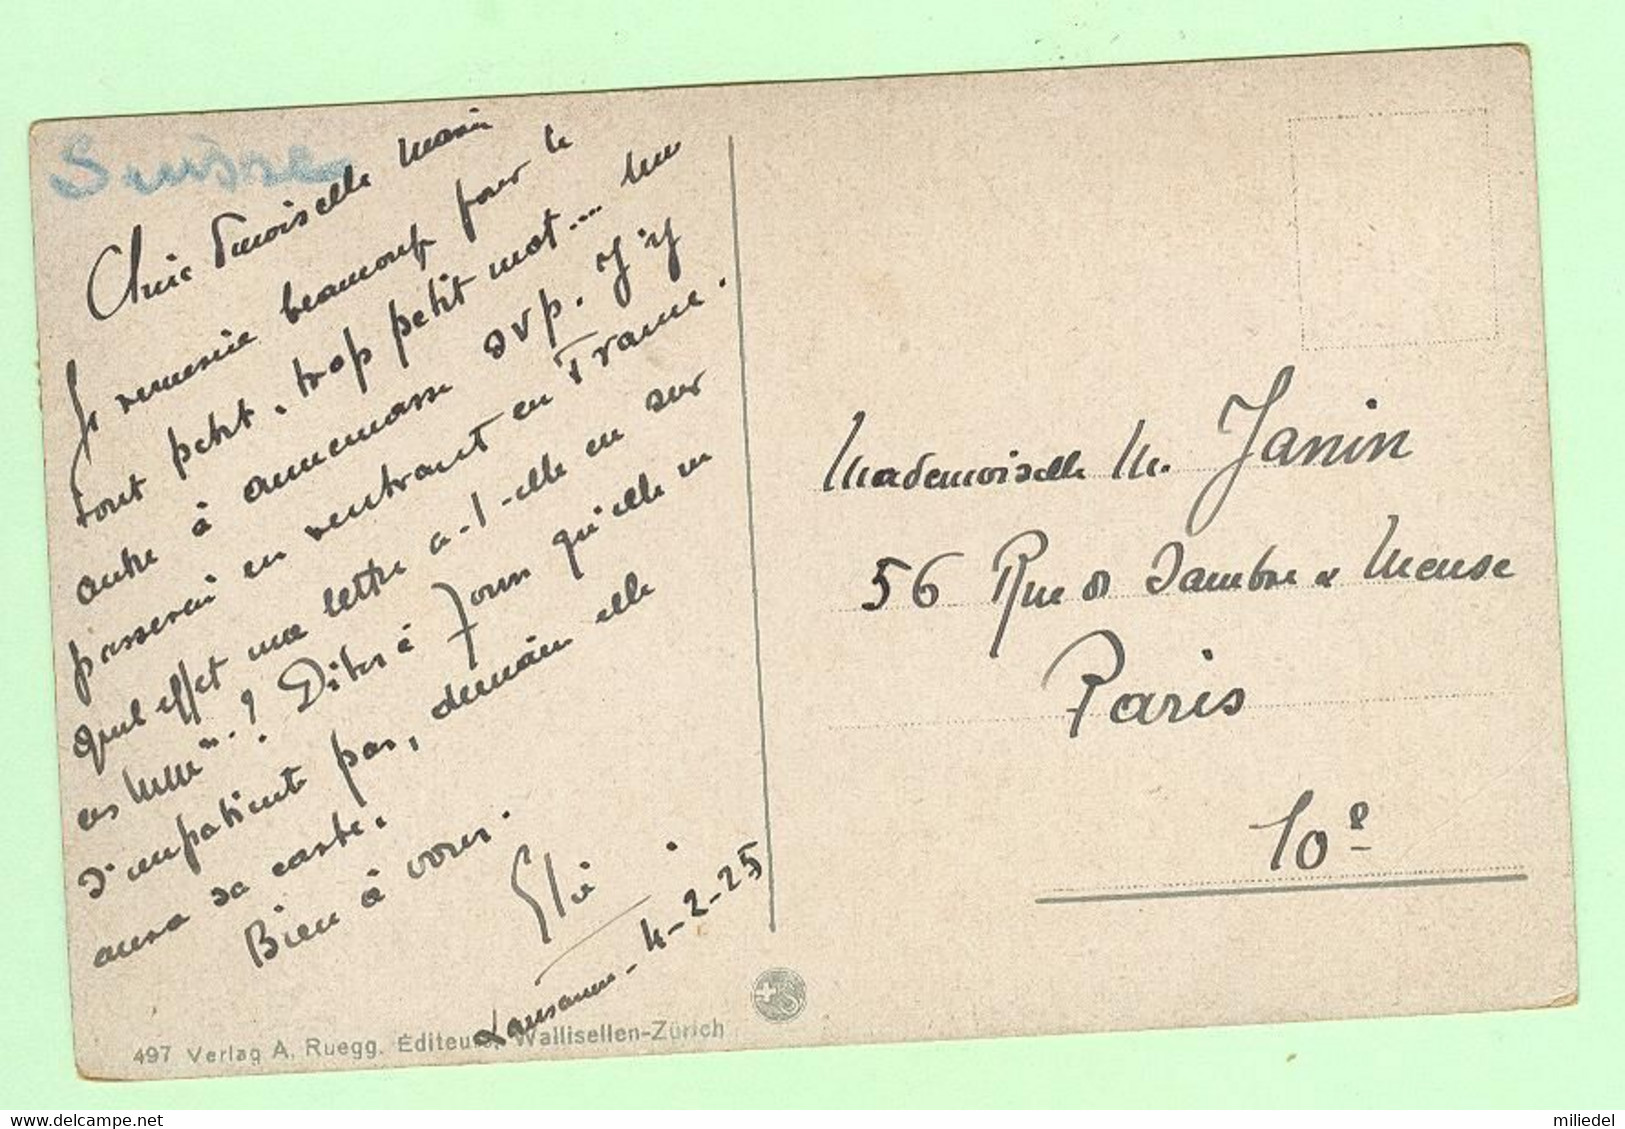 Suisse
Chère Dmoiselle Marie
Je remercie beaucoup pour le
tout petit, trop petit mot.... Un
autre à Annemasse svp. J'y
passerai en rentrant en France.
Quel effet ma lettre a-t-elle eu sur
ces ? Dites à qu'elle ne
s'impatiente pas, demain elle
aura sa carte.
Bien à vous.
Lausanne - 4-2-25
Mademoiselle M. Janin
56 Rue de Sambre & Meuse
Paris
10e
497 Verlag A. Ruegg. Éditeurs, Wallisellen-Zürich
miliedel
delcampe.net